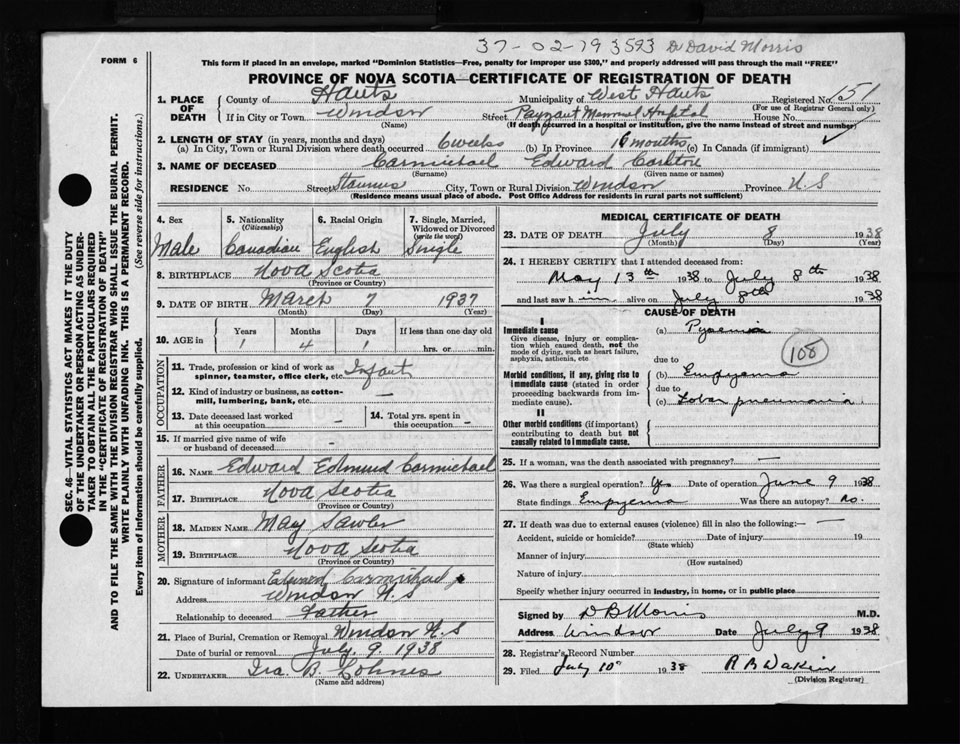 37-02-79 3593 Dr David Morris
FORM 6
This form if placed in an envelope, marked "Dominion Statistics—Free, penalty for improper use $300," and properly addressed will pass through the mail "FREE"
PROVINCE OF NOVA SCOTIA—CERTIFICATE OF REGISTRATION OF DEATH
1. PLACE OF DEATH
County of Hants Municipality of West Hants Registered No. 151
(For use of Registrar General only)
If in City or Town Windsor Street Payzant Memorial Hospital House No.
(Name) (If death occurred in a hospital or institution, give the name instead of street and number)
2. LENGTH OF STAY (in years, months and days)
(a) In City, Town or Rural Division where death occurred 6 weeks (b) In Province 16 months (c) In Canada (if immigrant)
3. NAME OF DECEASED Carmichael Edward Carlton
(Surname) (Given name or names)
RESIDENCE No. Street Stannus City, Town or Rural Division Windsor Province N.S
(Residence means usual place of abode. Post Office Address for residents in rural parts not sufficient)
4. Sex Male
5. Nationality (Citizenship) Canadian
6. Racial Origin English
7. Single, Married, Widowed or Divorced (write the word) Single
8. BIRTHPLACE Nova Scotia
(Province or Country)
9. DATE OF BIRTH March 7 1937
(Month) (Day) (Year)
10. AGE in Years Months Days If less than one day old
1 4 1 hrs. or min.
OCCUPATION
11. Trade, profession or kind of work as spinner, teamster, office clerk, etc. Infant
12. Kind of industry or business, as cotton-mill, lumbering, bank, etc. —
13. Date deceased last worked at this occupation —
14. Total yrs. spent in this occupation —
15. If married give name of wife or husband of deceased —
FATHER
16. NAME Edward Edmund Carmichael
17. BIRTHPLACE Nova Scotia
(Province or Country)
MOTHER
18. MAIDEN NAME May Sawler
19. BIRTHPLACE Nova Scotia
(Province or Country)
20. Signature of informant Edward Carmichael
Address Windsor N.S
Relationship to deceased Father
21. Place of Burial, Cremation or Removal Windsor N.S
Date of burial or removal July. 9. 1938
22. UNDERTAKER Ira. B. Lohnes
(Name and address)
MEDICAL CERTIFICATE OF DEATH
23. DATE OF DEATH July 8 1938
(Month) (Day) (Year)
24. I HEREBY CERTIFY that I attended deceased from:
May 13th 1938 to July 8th 1938
and last saw h im alive on July 8th 1938
CAUSE OF DEATH
I
Immediate cause
Give disease, injury or complication which caused death, not the mode of dying, such as heart failure, asphyxia, asthenia, etc
(a) Pyaemia
due to
108
Morbid conditions, if any, giving rise to immediate cause (stated in order proceeding backwards from immediate cause).
(b) Empyema
due to
(c) Lobar pneumonia
II
Other morbid conditions (if important) contributing to death but not causally related to immediate cause.
25. If a woman, was the death associated with pregnancy? —
26. Was there a surgical operation? Yes Date of operation June 9 1938
State findings Empyema Was there an autopsy? No.
27. If death was due to external causes (violence) fill in also the following:— —
Accident, suicide or homicide? Date of injury 19
(State which)
Manner of injury
(How sustained)
Nature of injury
Specify whether injury occurred in industry, in home, or in public place
Signed by D B Morris M.D.
Address Windsor Date July 9 1938
28. Registrar's Record Number
29. Filed July 10 1938 R B Dakin
(Division Registrar)
SEC. 46—VITAL STATISTICS ACT MAKES IT THE DUTY
OF THE UNDERTAKER OR PERSON ACTING AS UNDER-
TAKER TO OBTAIN ALL THE PARTICULARS REQUIRED
IN THE "CERTIFICATE OF REGISTRATION OF DEATH"
AND TO FILE THE SAME WITH THE DIVISION REGISTRAR WHO SHALL ISSUE THE BURIAL PERMIT.
WRITE PLAINLY WITH UNFADING INK. THIS IS A PERMANENT RECORD.
Every item of information should be carefully supplied. (See reverse side for instructions.)